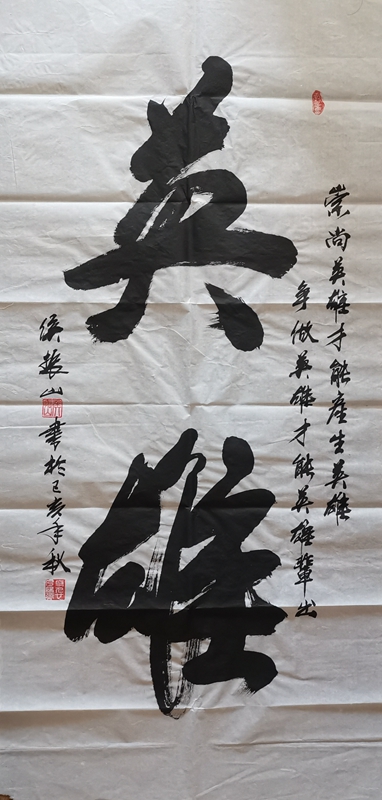 崇尚英雄才能産生英雄
争做英雄才能英雄輩出
英雄
侯振山書於己亥年秋